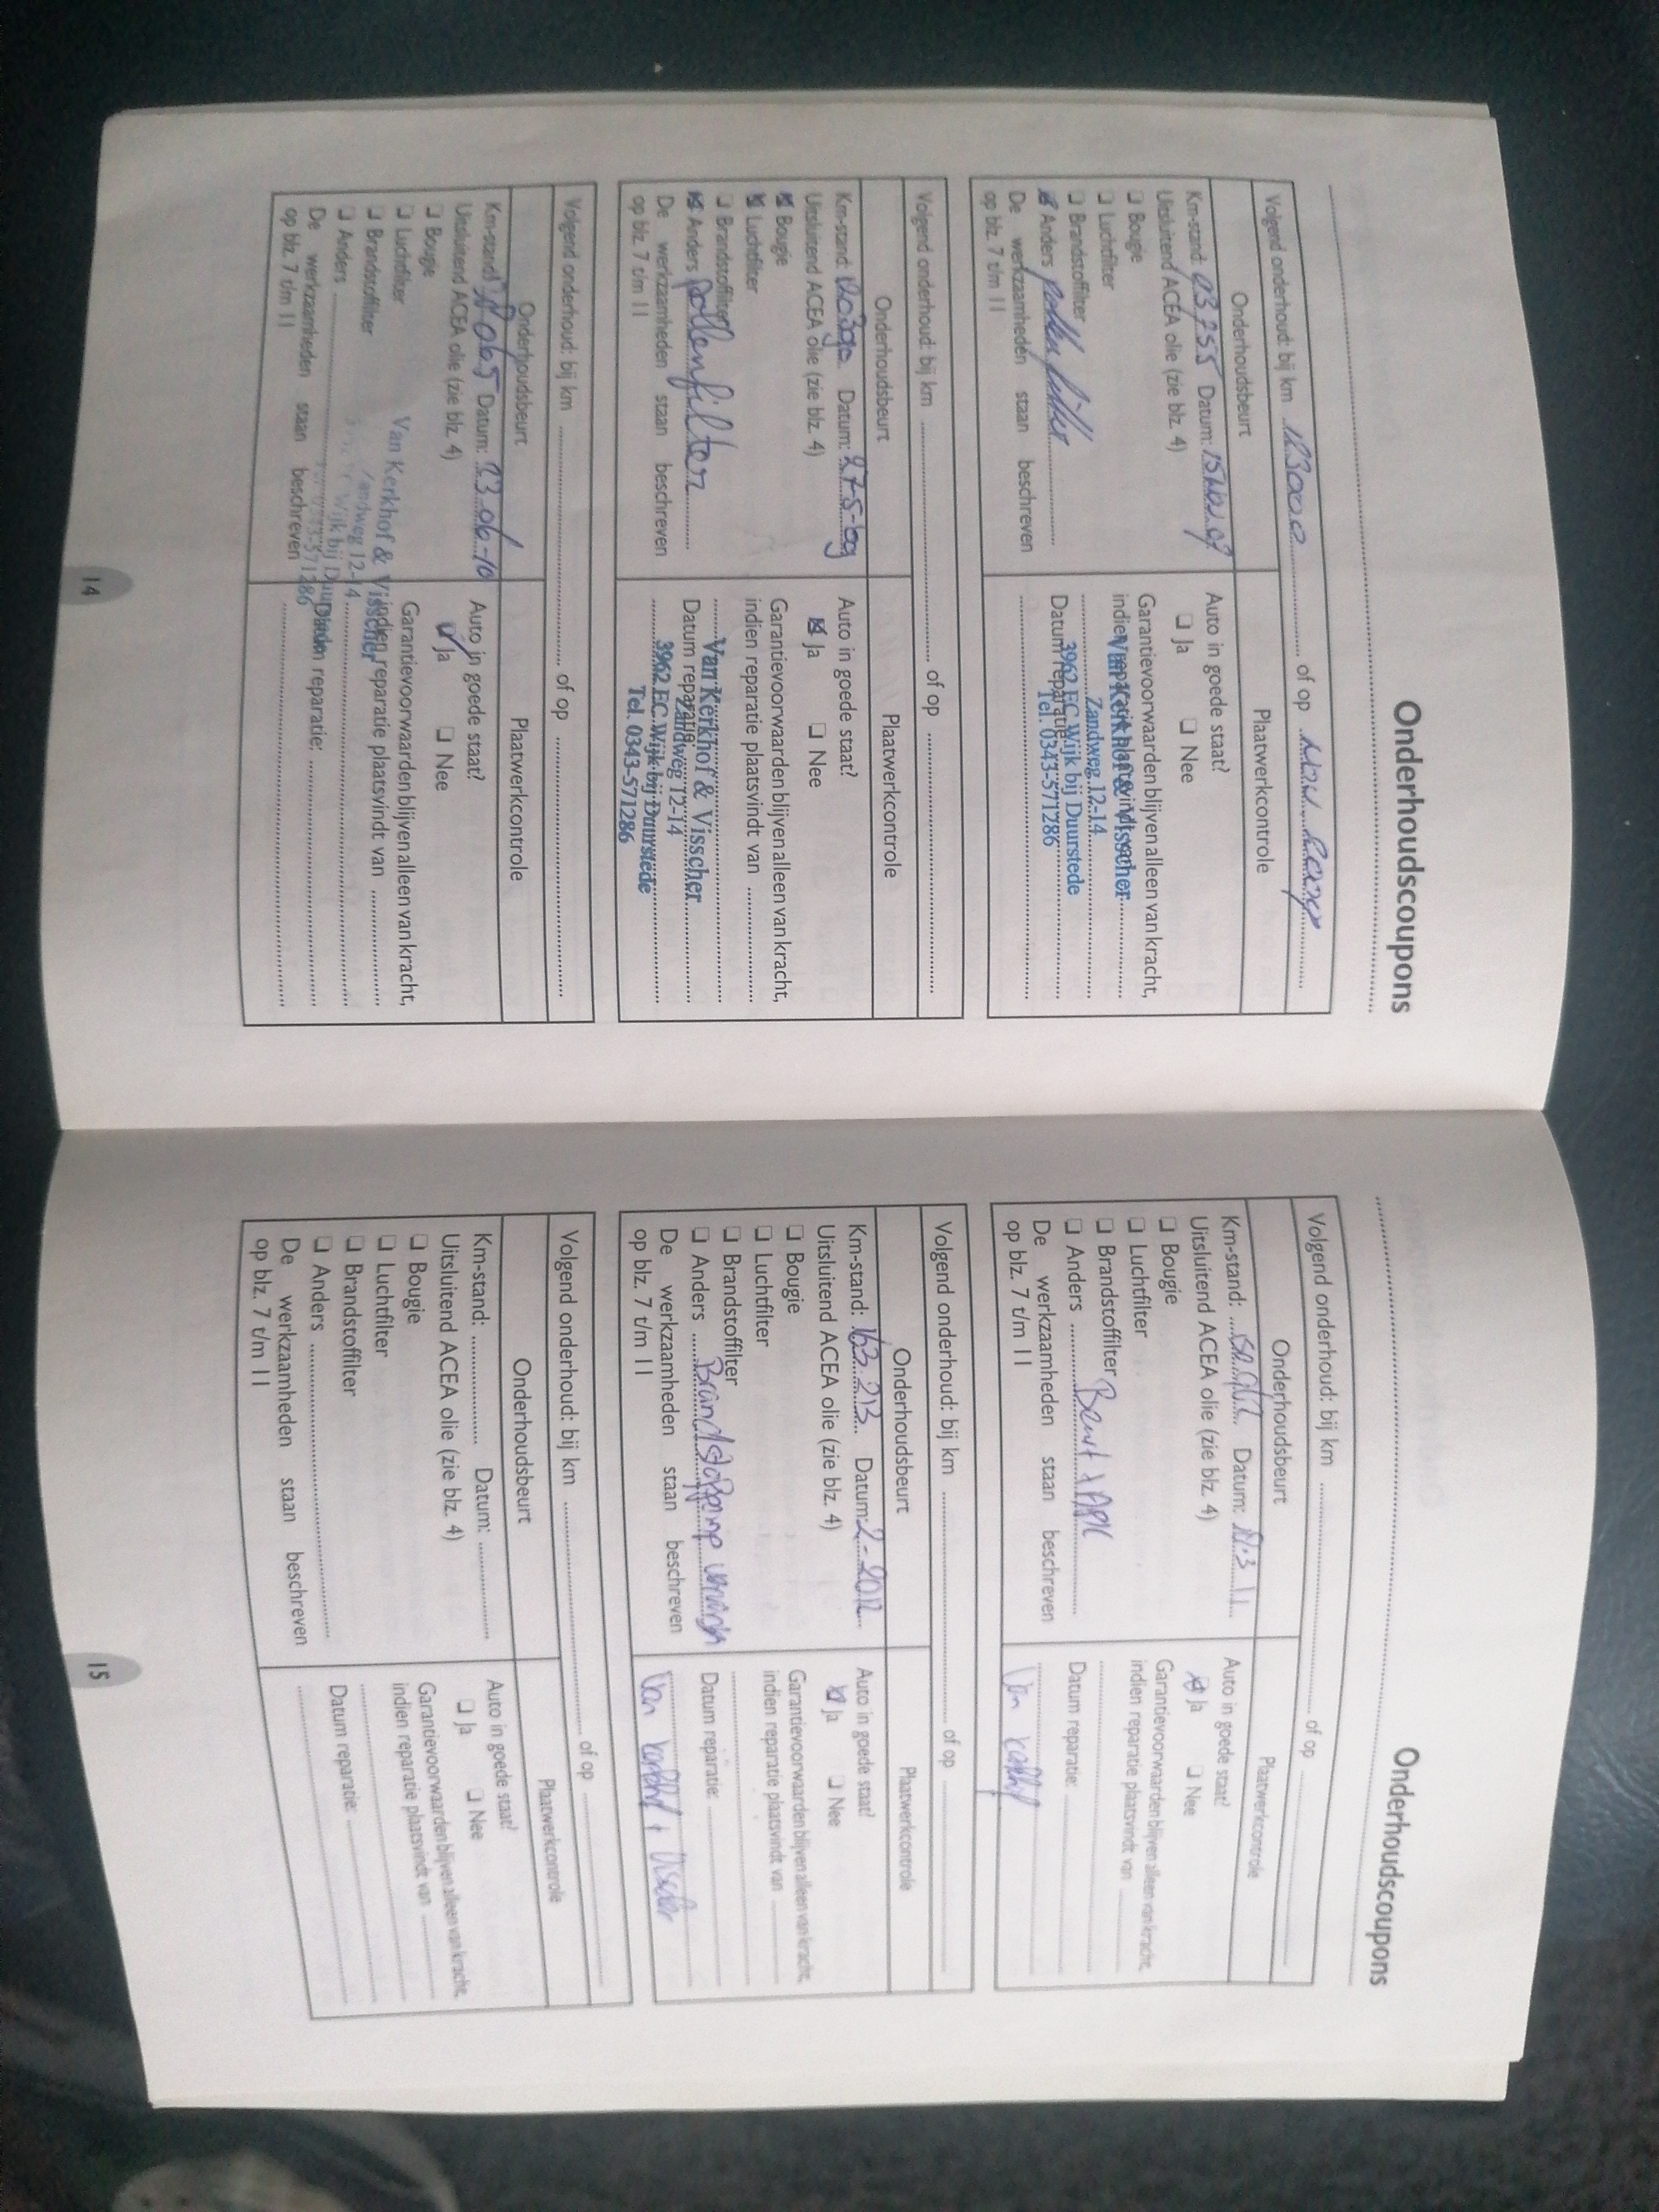 Onderhoudscoupons
Volgend onderhoud: bij km of op
Onderhoudsbeurt Plaatwerkcontrole
Km-stand: Datum:
Uitsluitend ACEA olie (zie blz. 4)
❑ Bougie
❑ Luchtfilter
❑ Brandstoffilter
☒ Anders
De werkzaamheden staan beschreven
op blz. 7 t/m 11
Auto in goede staat?
❑ Ja ❑ Nee
Garantievoorwaarden blijven alleen van kracht,
Van Kerkhof & Visscher
Zandweg 12-14
3962 EC Wijk bij Duurstede
Datum reparatie:
Tel. 0343-571286
Volgend onderhoud: bij km of op
Onderhoudsbeurt Plaatwerkcontrole
Km-stand: Datum: 27-5-09
Uitsluitend ACEA olie (zie blz. 4)
☒ Bougie
☒ Luchtfilter
❑ Brandstoffilter
☒ Anders pollenfilter
De werkzaamheden staan beschreven
op blz. 7 t/m 11
Auto in goede staat?
☒ Ja ❑ Nee
Garantievoorwaarden blijven alleen van kracht,
indien reparatie plaatsvindt van
Van Kerkhof & Visscher
Datum reparatie:
Zandweg 12-14
3962 EC Wijk bij Duurstede
Tel. 0343-571286
Volgend onderhoud: bij km of op
Onderhoudsbeurt Plaatwerkcontrole
Km-stand: Datum: 03-06-10
Uitsluitend ACEA olie (zie blz. 4)
❑ Bougie
❑ Luchtfilter
❑ Brandstoffilter
❑ Anders
De werkzaamheden staan beschreven
op blz. 7 t/m 11
Auto in goede staat?
☑ Ja ❑ Nee
Garantievoorwaarden blijven alleen van kracht,
indien reparatie plaatsvindt van
Van Kerkhof & Visscher
Zandweg 12-14
Wijk bij
Datum reparatie:
14
Onderhoudscoupons
Volgend onderhoud: bij km of op
Onderhoudsbeurt Plaatwerkcontrole
Km-stand: Datum:
Uitsluitend ACEA olie (zie blz. 4)
❑ Bougie
❑ Luchtfilter
❑ Brandstoffilter
❑ Anders Beurt + APK
De werkzaamheden staan beschreven
op blz. 7 t/m 11
Auto in goede staat?
☒ Ja ❑ Nee
Garantievoorwaarden blijven alleen van kracht,
indien reparatie plaatsvindt van
Datum reparatie:
Van Kerkhof
Volgend onderhoud: bij km of op
Onderhoudsbeurt Plaatwerkcontrole
Km-stand: 163.213 Datum: 2-2012
Uitsluitend ACEA olie (zie blz. 4)
❑ Bougie
❑ Luchtfilter
❑ Brandstoffilter
❑ Anders
De werkzaamheden staan beschreven
op blz. 7 t/m 11
Auto in goede staat?
☒ Ja ❑ Nee
Garantievoorwaarden blijven alleen van kracht,
indien reparatie plaatsvindt van
Datum reparatie:
Van Kerkhof + Visscher
Volgend onderhoud: bij km of op
Onderhoudsbeurt Plaatwerkcontrole
Km-stand: Datum:
Uitsluitend ACEA olie (zie blz. 4)
❑ Bougie
❑ Luchtfilter
❑ Brandstoffilter
❑ Anders
De werkzaamheden staan beschreven
op blz. 7 t/m 11
Auto in goede staat?
❑ Ja ❑ Nee
Garantievoorwaarden blijven alleen van kracht,
indien reparatie plaatsvindt van
Datum reparatie:
15